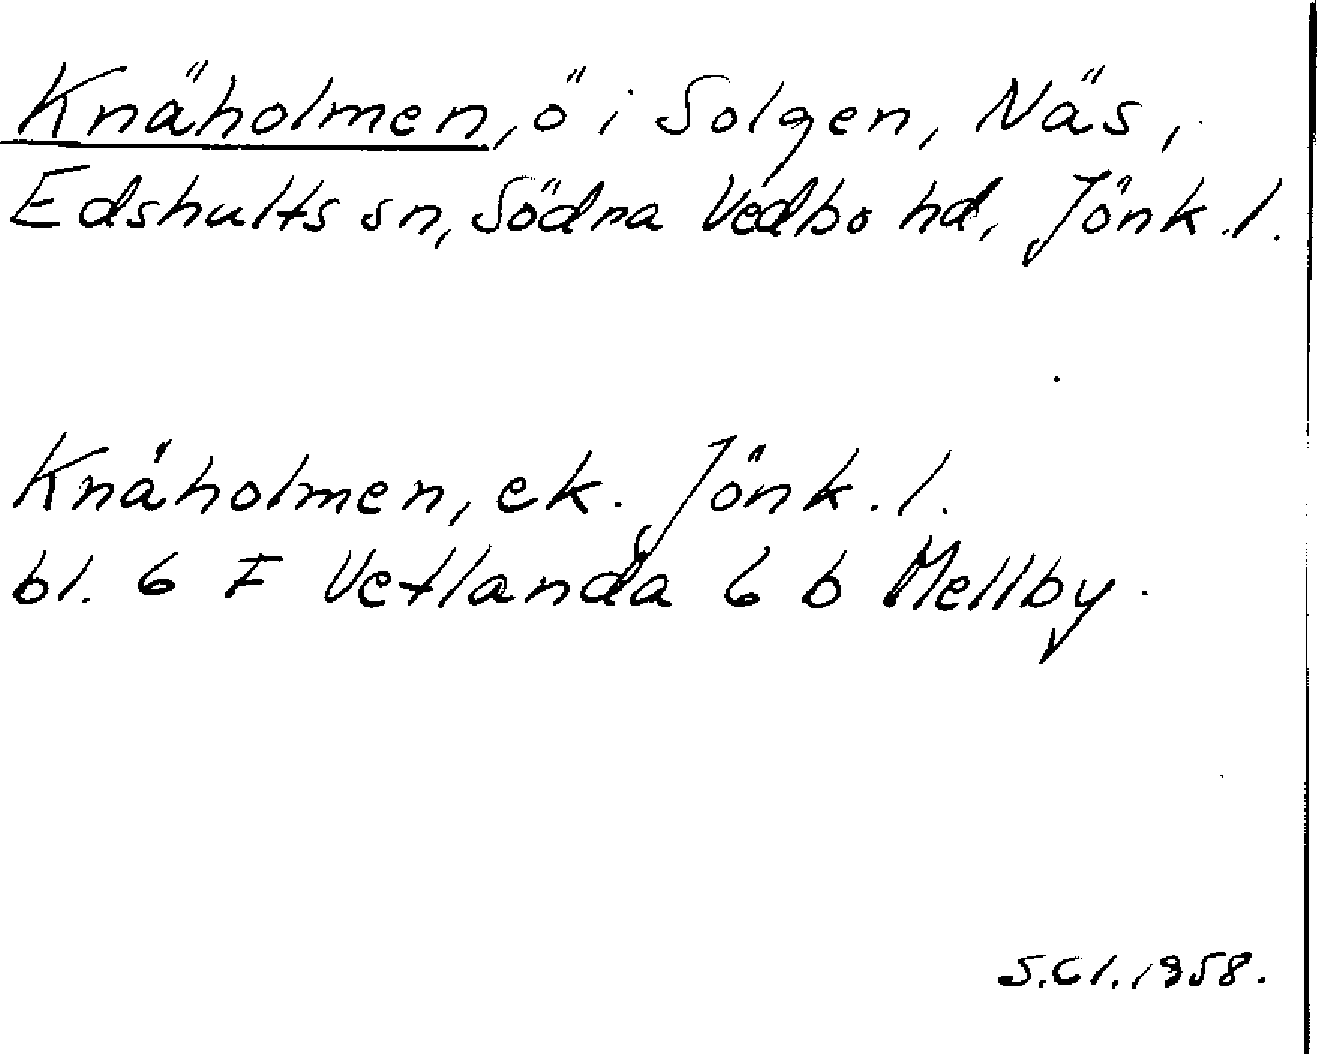 Knäholmen, ö i Solgen, Näs,
Edshults sn, Södra Vedbo hd, Jönk. l.
Knäholmen, ek. Jönk. l.
bl. 6 F Vetlanda 6 b Mellby.
S.Cl. 1958.